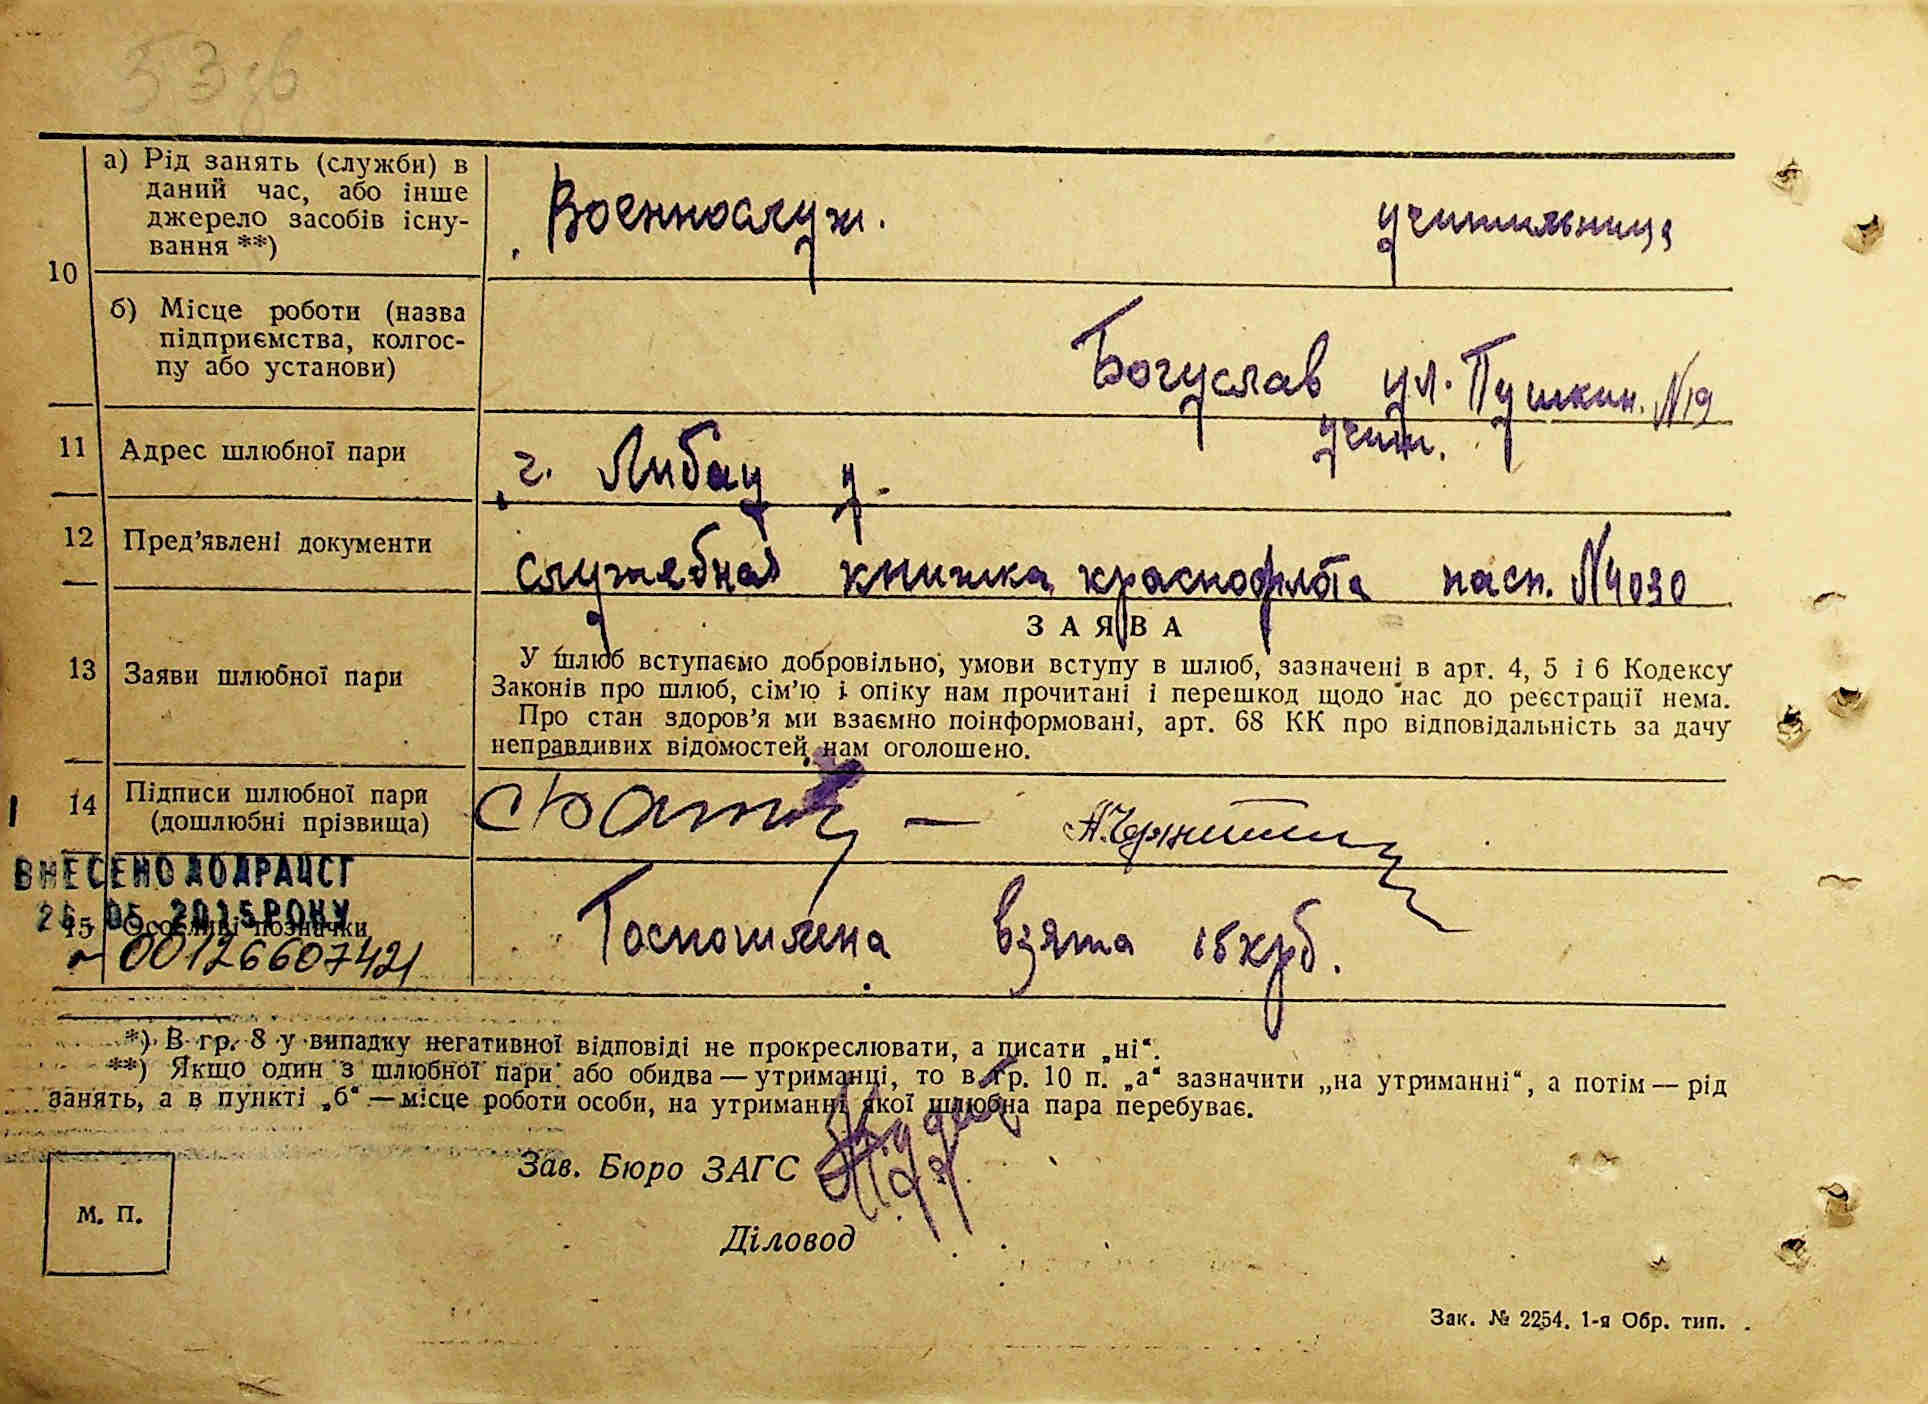 а) Рід занять (служби) в
даний час, або інше
джерело засобів існу-
вання **)
Военнослуж.
учительница
10
б) Місце роботи (назва
підприємства, колгос-
пу або установи)
Богуслав ул. Пушкин. N 19
учит.
11 Адрес шлюбної пари
г. Либау
12 Пред’явлені документи
служебная книжка краснофлота пасп. N 4030
13 Заяви шлюбної пари
ЗАЯВА
У шлюб вступаємо добровільно, умови вступу в шлюб, зазначені в арт. 4, 5 і 6 Кодексу
Законів про шлюб, сім’ю і опіку нам прочитані і перешкод щодо нас до реєстрації нема.
Про стан здоров’я ми взаємно поінформовані, арт. 68 КК про відповідальність за дачу
неправдивих відомостей нам оголошено.
14 Підписи шлюбної пари
(дошлюбні прізвища)
ВНЕСЕНО ДО ДРАЦСГ
26. 05. 2015 РОКУ
15 Особливі позначки
00126607421
Госпошлина взята 15 крб.
*) В гр. 8 у випадку негативної відповіді не прокреслювати, а писати „ні“.
**) Якщо один з шлюбної пари або обидва — утриманці, то в гр. 10 п. „а“ зазначити „на утриманні“, а потім — рід
занять, а в пункті „б“ — місце роботи особи, на утриманні якої шлюбна пара перебуває.
Зав. Бюро ЗАГС
М. П.
Діловод
Зак. № 2254. 1-я Обр. тип.